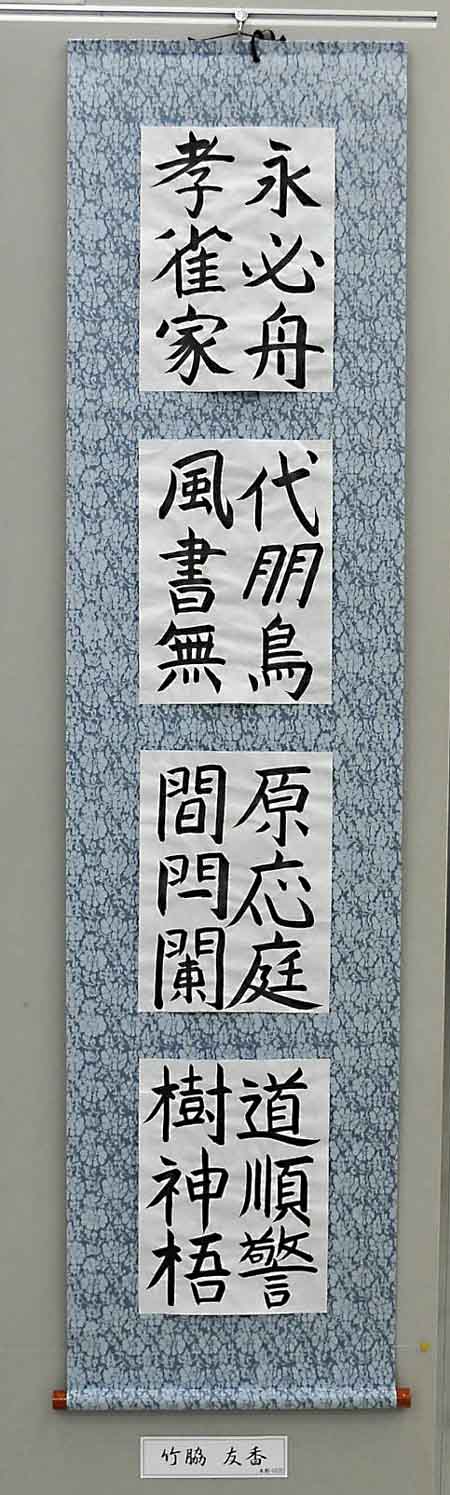 永必舟
孝雀家
代朋鳥
風書無
原応庭
間閂闌
道順警
樹神梧
竹脇 友香